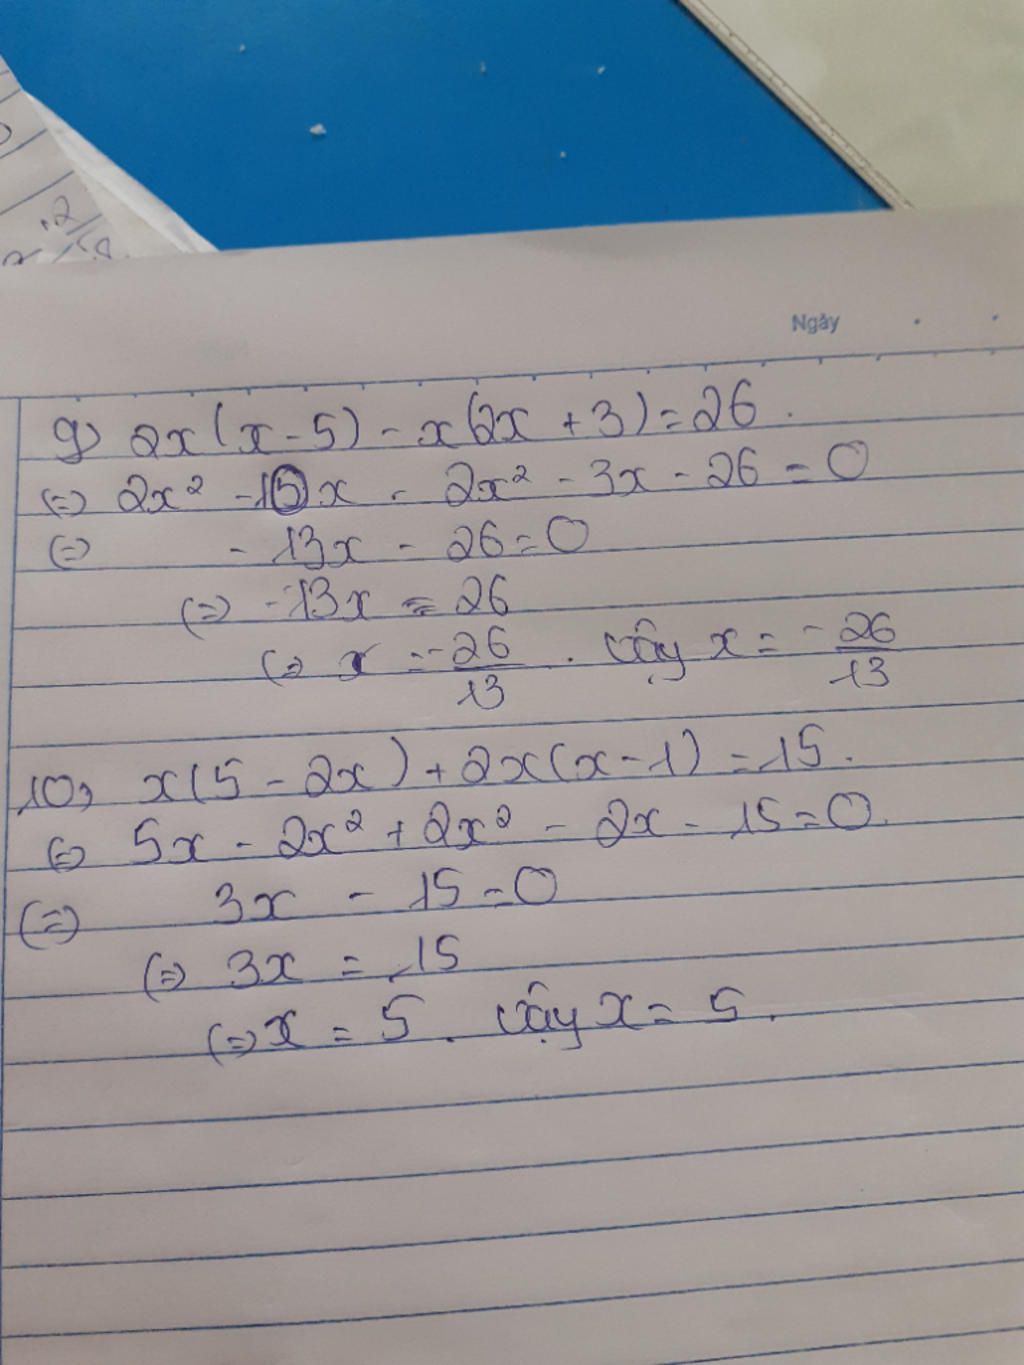 Ngày
9) 2x(x-5) - x(2x + 3) = 26.
(=) 2x² - 10x - 2x² - 3x - 26 = 0
(=) - 13x - 26 = 0
(=) -13x = 26
(=) x = -26/13. Vậy x = -26/13
10, x(5 - 2x) + 2x(x - 1) = 15.
(=) 5x - 2x² + 2x² - 2x - 15 = 0.
(=) 3x - 15 = 0
(=) 3x = 15
(=) x = 5. Vậy x = 5.